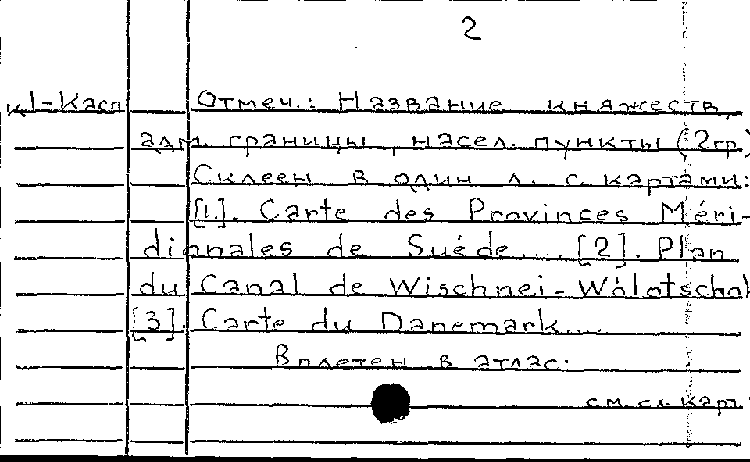 2
к1-Касп
Отмеч.: Название княжеств,
адм. границы, насел. пункты (2гр)
Склеен в один л. с картами:
[1]. Carte des Provinces Méri-
dionales de Suéde.... [2]. Plan
du Canal de Wischnei-Wolotschok
[3]. Carte du Danemark....
Вплетен в атлас:
см. сл. карт.